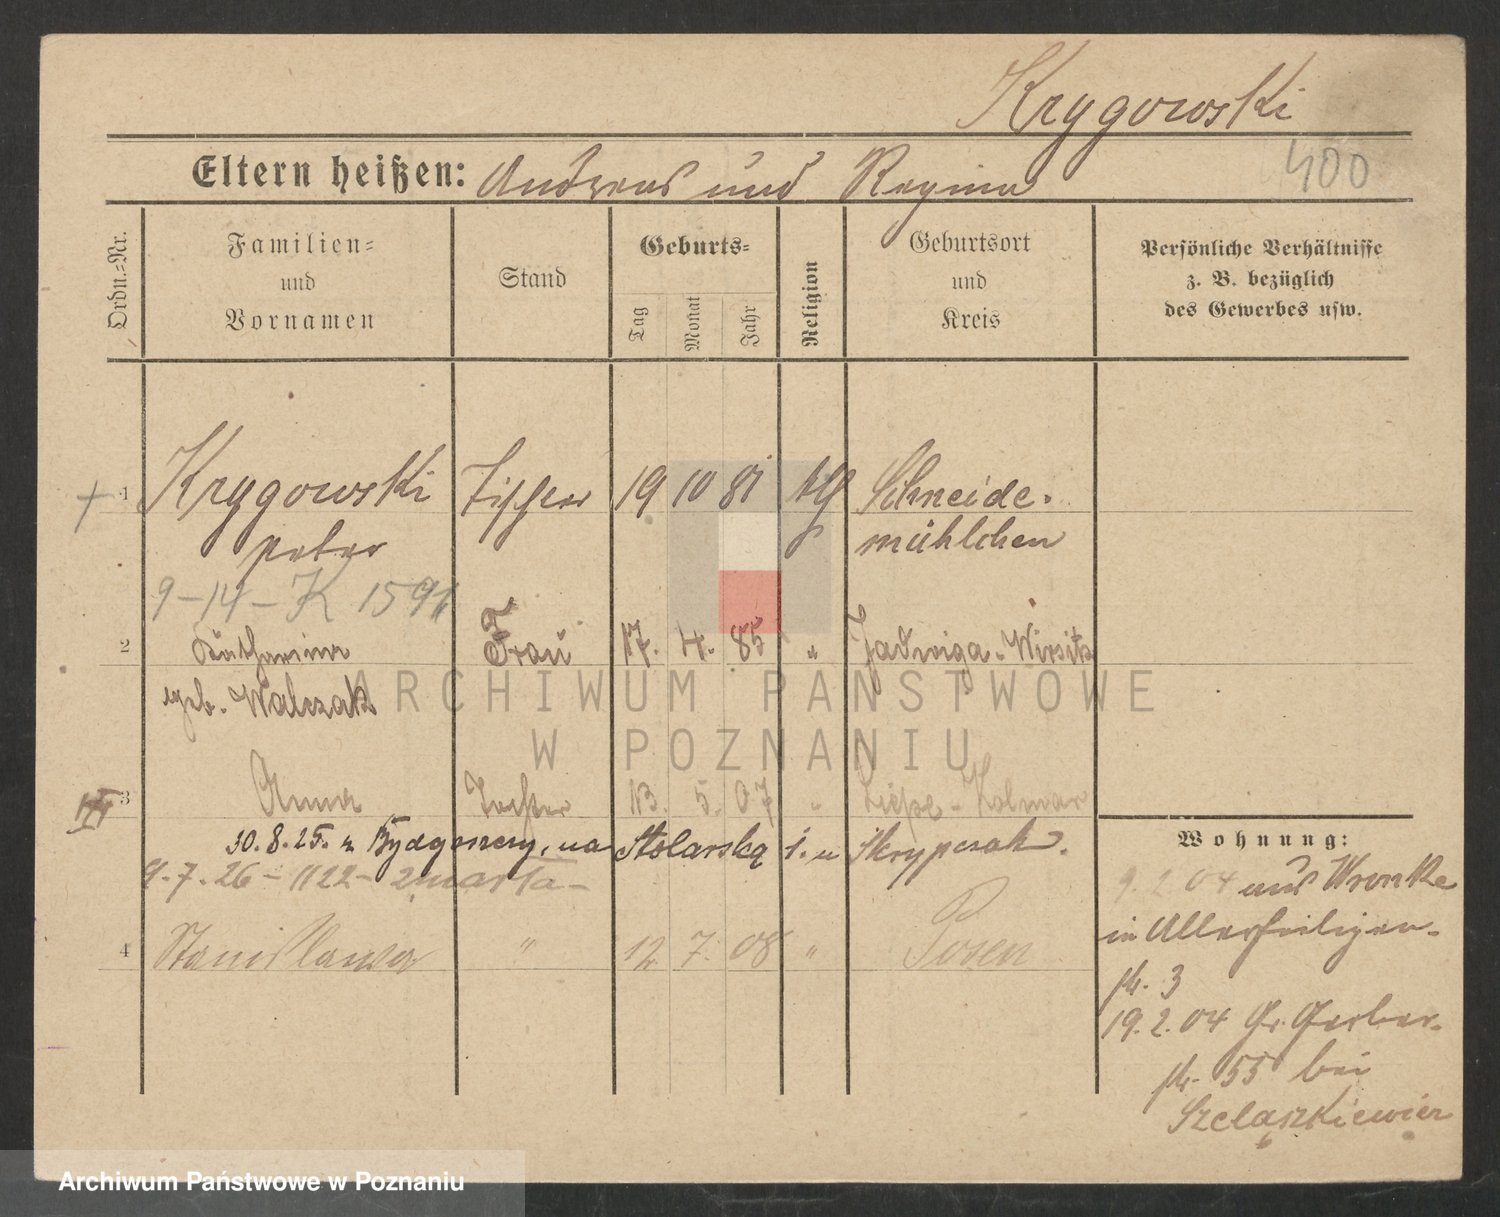 Krygowski
400
Eltern heißen: Andreas und Regina
Ordn.=Nr.
Familien=
und
Vornamen
Stand
Geburts=
Tag
Monat
Jahr
Religion
Geburtsort
und
Kreis
Persönliche Verhältnisse
z. B. bezüglich
des Gewerbes usw.
1 Krygowski Tischler 19 10 81 kth Schneide-
Peter mühlchen
9-14-K 1591
2 Katharina Frau 17. 4. 85 " Jadwiga-Wirsitz
geb. Walczak
3 Anna Tochter 13. 5. 07 " Liepe-Kolmar
30.8.25. z Bydgoszczy, na Stolarską 1. u Skrypczak.
9.7.26-1122-zmarła-
4 Stanislawa " 12 7. 08 " Posen
Wohnung:
9.2.04 aus Wronke
in Allerheiligen-
str. 3
19.2.04 Gr. Gerber-
str. 55 bei
Szelążkiewicz
ARCHIWUM PAŃSTWOWE
W POZNANIU
Archiwum Państwowe w Poznaniu